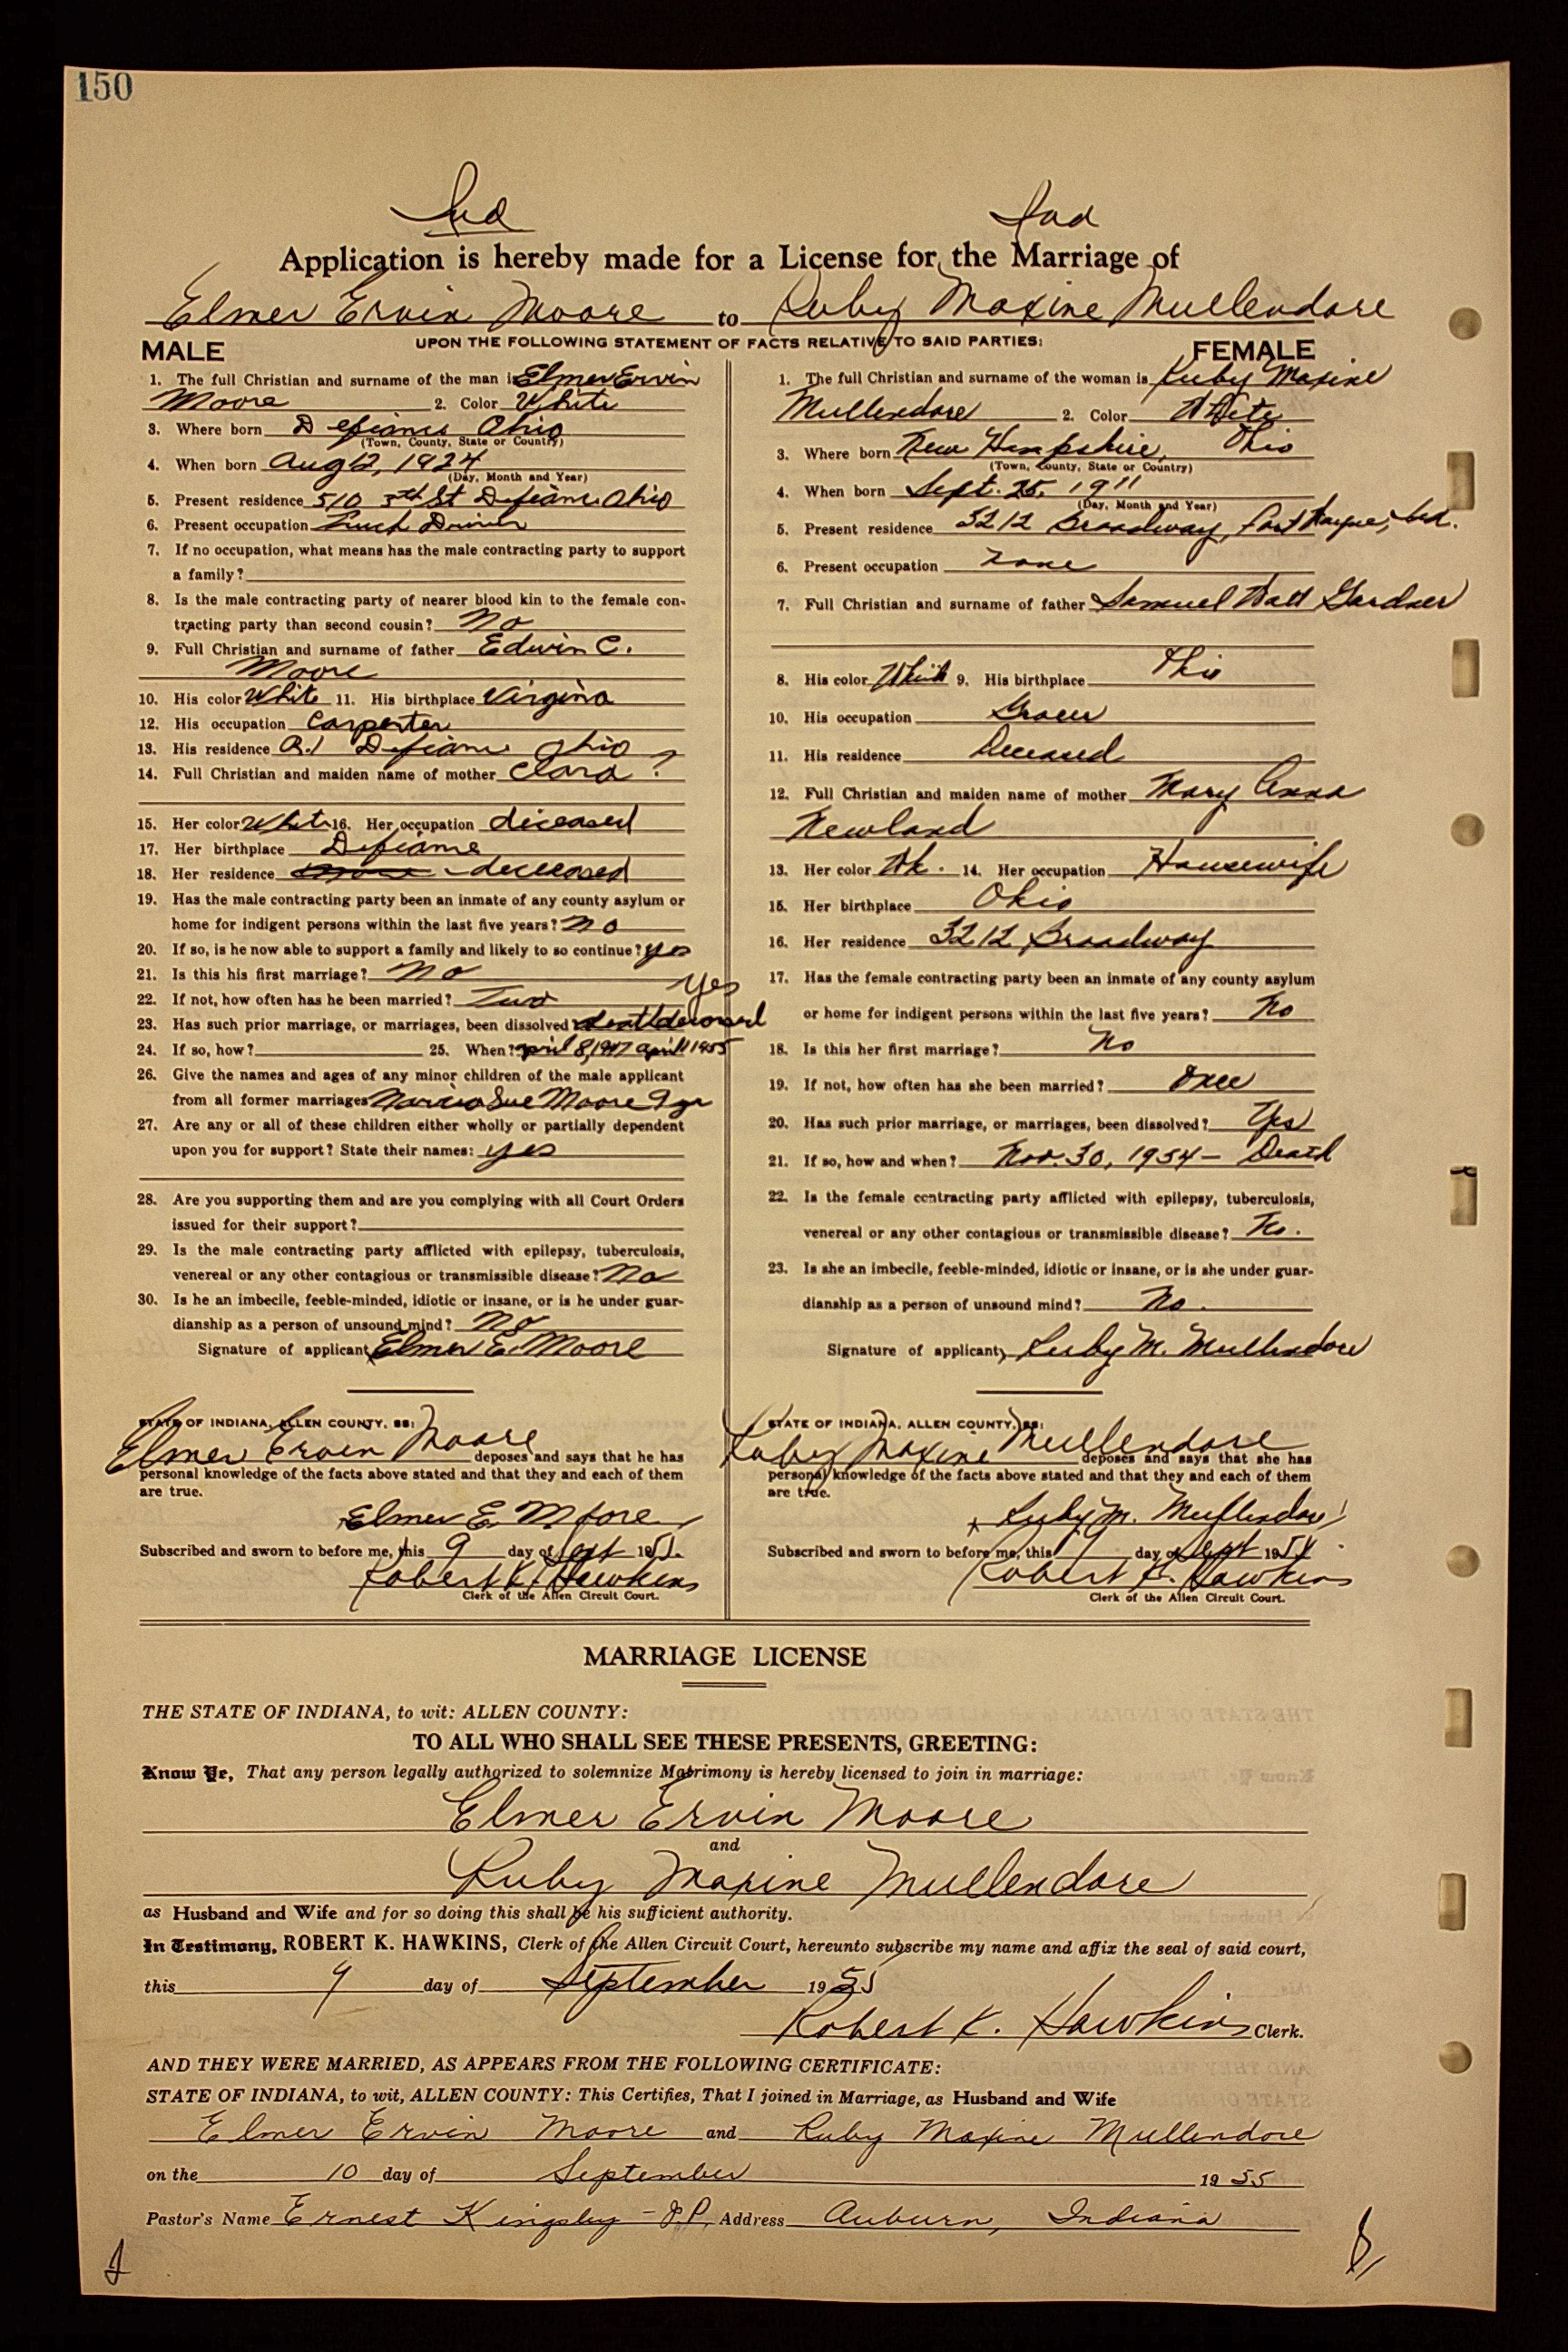 150
Ind Ind
Application is hereby made for a License for the Marriage of
Elmer Ervin Moore to Ruby Maxine Mullendore
UPON THE FOLLOWING STATEMENT OF FACTS RELATIVE TO SAID PARTIES:
MALE
1. The full Christian and surname of the man is Elmer Ervin
Moore 2. Color White
3. Where born Defiance Ohio
(Town, County, State or Country)
4. When born Aug 12, 1924
(Day, Month and Year)
5. Present residence 510 5th St Defiance Ohio
6. Present occupation Truck Driver
7. If no occupation, what means has the male contracting party to support
a family?
8. Is the male contracting party of nearer blood kin to the female con-
tracting party than second cousin? No
9. Full Christian and surname of father Edwin C.
Moore
10. His color White 11. His birthplace Virginia
12. His occupation Carpenter
13. His residence R.1 Defiance Ohio
14. Full Christian and maiden name of mother Clara ?
15. Her color White 16. Her occupation deceased
17. Her birthplace Defiance
18. Her residence deceased
19. Has the male contracting party been an inmate of any county asylum or
home for indigent persons within the last five years? no
20. If so, is he now able to support a family and likely to so continue? yes
21. Is this his first marriage? No
22. If not, how often has he been married? Two
yes
23. Has such prior marriage, or marriages, been dissolved?
24. If so, how? 25. When? april 8, 1947 april 1 1955
26. Give the names and ages of any minor children of the male applicant
from all former marriages Sue Moore 7 yr
27. Are any or all of these children either wholly or partially dependent
upon you for support? State their names: yes
28. Are you supporting them and are you complying with all Court Orders
issued for their support?
29. Is the male contracting party afflicted with epilepsy, tuberculosis,
venereal or any other contagious or transmissible disease? No
30. Is he an imbecile, feeble-minded, idiotic or insane, or is he under guar-
dianship as a person of unsound mind? No
Signature of applicant, Elmer E. Moore
STATE OF INDIANA, ALLEN COUNTY, SS:
Elmer Ervin Moore deposes and says that he has
personal knowledge of the facts above stated and that they and each of them
are true.
Elmer E. Moore
Subscribed and sworn to before me, this 9 day of Sept 1955.
Robert K. Hawkins
Clerk of the Allen Circuit Court.
FEMALE
1. The full Christian and surname of the woman is Ruby Maxine
Mullendore 2. Color White
3. Where born New Hampshire, Ohio
(Town, County, State or Country)
4. When born Sept. 25, 1911
(Day, Month and Year)
5. Present residence 3212 Broadway, Fort Wayne, Ind.
6. Present occupation None
7. Full Christian and surname of father Samuel Watt Gardner
8. His color White 9. His birthplace Ohio
10. His occupation Grocer
11. His residence Deceased
12. Full Christian and maiden name of mother Mary Anna
Newland
13. Her color Wh. 14. Her occupation Housewife
15. Her birthplace Ohio
16. Her residence 3212 Broadway
17. Has the female contracting party been an inmate of any county asylum
or home for indigent persons within the last five years? No
18. Is this her first marriage? No
19. If not, how often has she been married? Once
20. Has such prior marriage, or marriages, been dissolved? Yes
21. If so, how and when? Nov. 30, 1954 - Death
22. Is the female contracting party afflicted with epilepsy, tuberculosis,
venereal or any other contagious or transmissible disease? No.
23. Is she an imbecile, feeble-minded, idiotic or insane, or is she under guar-
dianship as a person of unsound mind? No.
Signature of applicant, Ruby M. Mullendore
STATE OF INDIANA, ALLEN COUNTY, SS:
Ruby Maxine Mullendore deposes and says that she has
personal knowledge of the facts above stated and that they and each of them
are true.
x Ruby M. Mullendore
Subscribed and sworn to before me, this day of Sept
Robert K. Hawkins
Clerk of the Allen Circuit Court.
MARRIAGE LICENSE
THE STATE OF INDIANA, to wit: ALLEN COUNTY:
TO ALL WHO SHALL SEE THESE PRESENTS, GREETING:
Know Ye, That any person legally authorized to solemnize Matrimony is hereby licensed to join in marriage:
Elmer Ervin Moore
and
Ruby Maxine Mullendore
as Husband and Wife and for so doing this shall be his sufficient authority.
In Testimony, ROBERT K. HAWKINS, Clerk of the Allen Circuit Court, hereunto subscribe my name and affix the seal of said court,
this 9 day of September 1955
Robert K. Hawkins Clerk.
AND THEY WERE MARRIED, AS APPEARS FROM THE FOLLOWING CERTIFICATE:
STATE OF INDIANA, to wit, ALLEN COUNTY: This Certifies, That I joined in Marriage, as Husband and Wife
Elmer Ervin Moore and Ruby Maxine Mullendore
on the 10 day of September 1955
Pastor's Name Ernest Kingsley - J.P. Address Auburn, Indiana